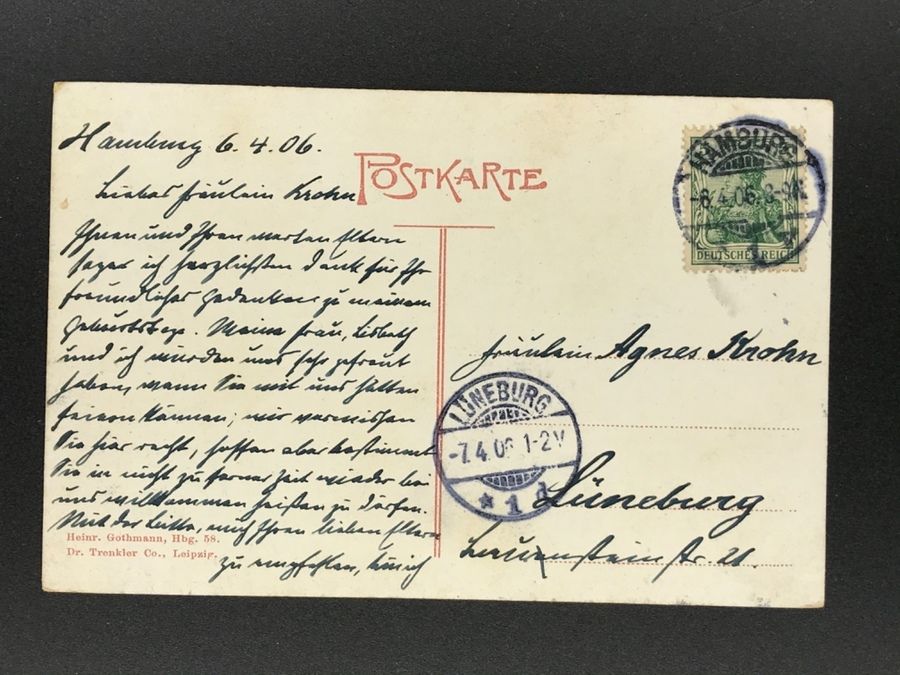 Hamburg 6.4.06.
POSTKARTE
Liebes Fräulein Krohn
Ihnen und Ihren werten Eltern
sage ich herzlichsten Dank für Ihr
freundliches Gedenken zu meinem
Geburtstage. Meine Frau, Lisbeth
und ich würden uns sehr gefreut
haben, wenn Sie mit uns hätten
feiern können; wir vermissen
Sie hier recht, hoffen aber bestimmt
Sie in nicht zu ferner Zeit wieder bei
uns willkommen heißen zu dürfen.
Mit der Bitte, mich Ihren lieben Eltern
zu empfehlen, bin ich
Heinr. Gothmann, Hbg. 58.
Dr. Trenkler Co., Leipzig.
HAMBURG
6.4.06.
DEUTSCHES REICH
Fräulein Agnes Krohn
LÜNEBURG
-7.4.06 1-2V
* 1 d
Lüneburg
str. 21.